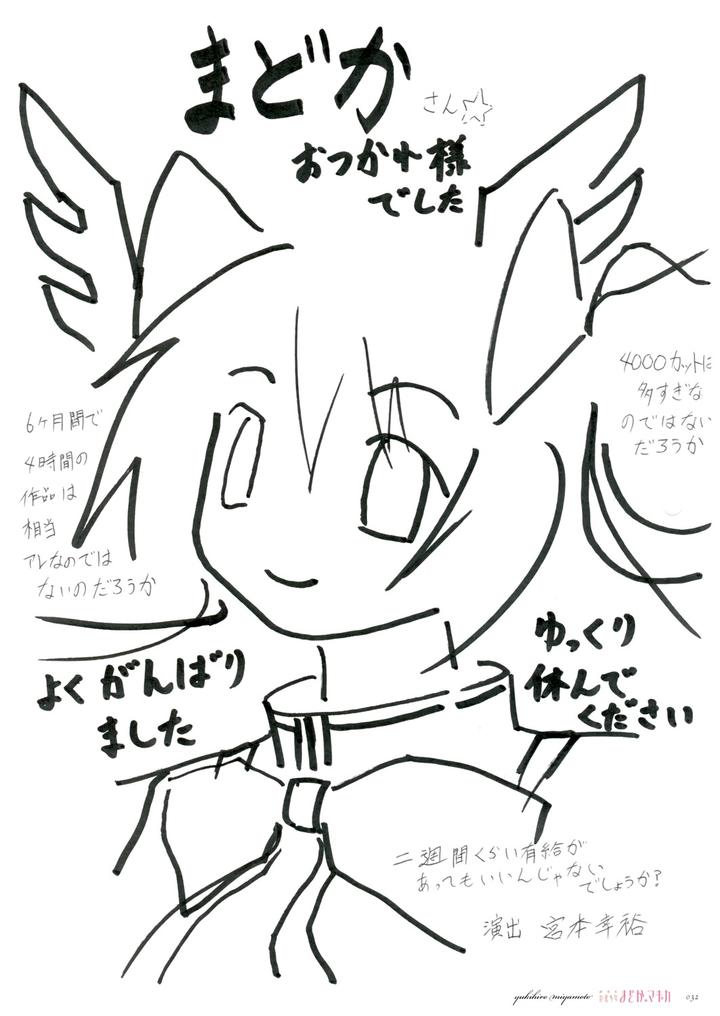 まどか
さん☆
おつかれ様
でした
4000カットは
多すぎな
のではない
だろうか
6ヶ月間で
4時間の
作品は
相当
アレなのでは
ないのだろうか
よくがんばり
ました
ゆっくり
休んで
ください
二週間くらい有給が
あってもいいんじゃない
でしょうか?
演出 宮本幸裕
yukihiro miyamoto
まどか☆マギカ
032